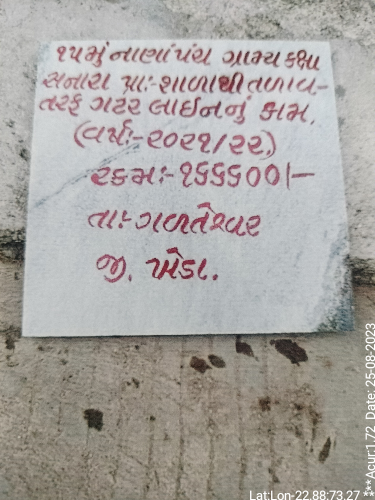 ૧૫મું નાણાંપંચ ગ્રામ્ય કક્ષા
સનાદરા પ્રા:-શાળાથી તળાવ-
તરફ ગટર લાઈનનું કામ.
(વર્ષ:-૨૦૨૧/૨૨)
રકમ:-૧૬૬૬૦૦/-
તા:-ગળતેશ્વર
જી. ખેડા.
Lat:Lon-22.88:73.27
***Acur:1.72 Date: 25-08-2023